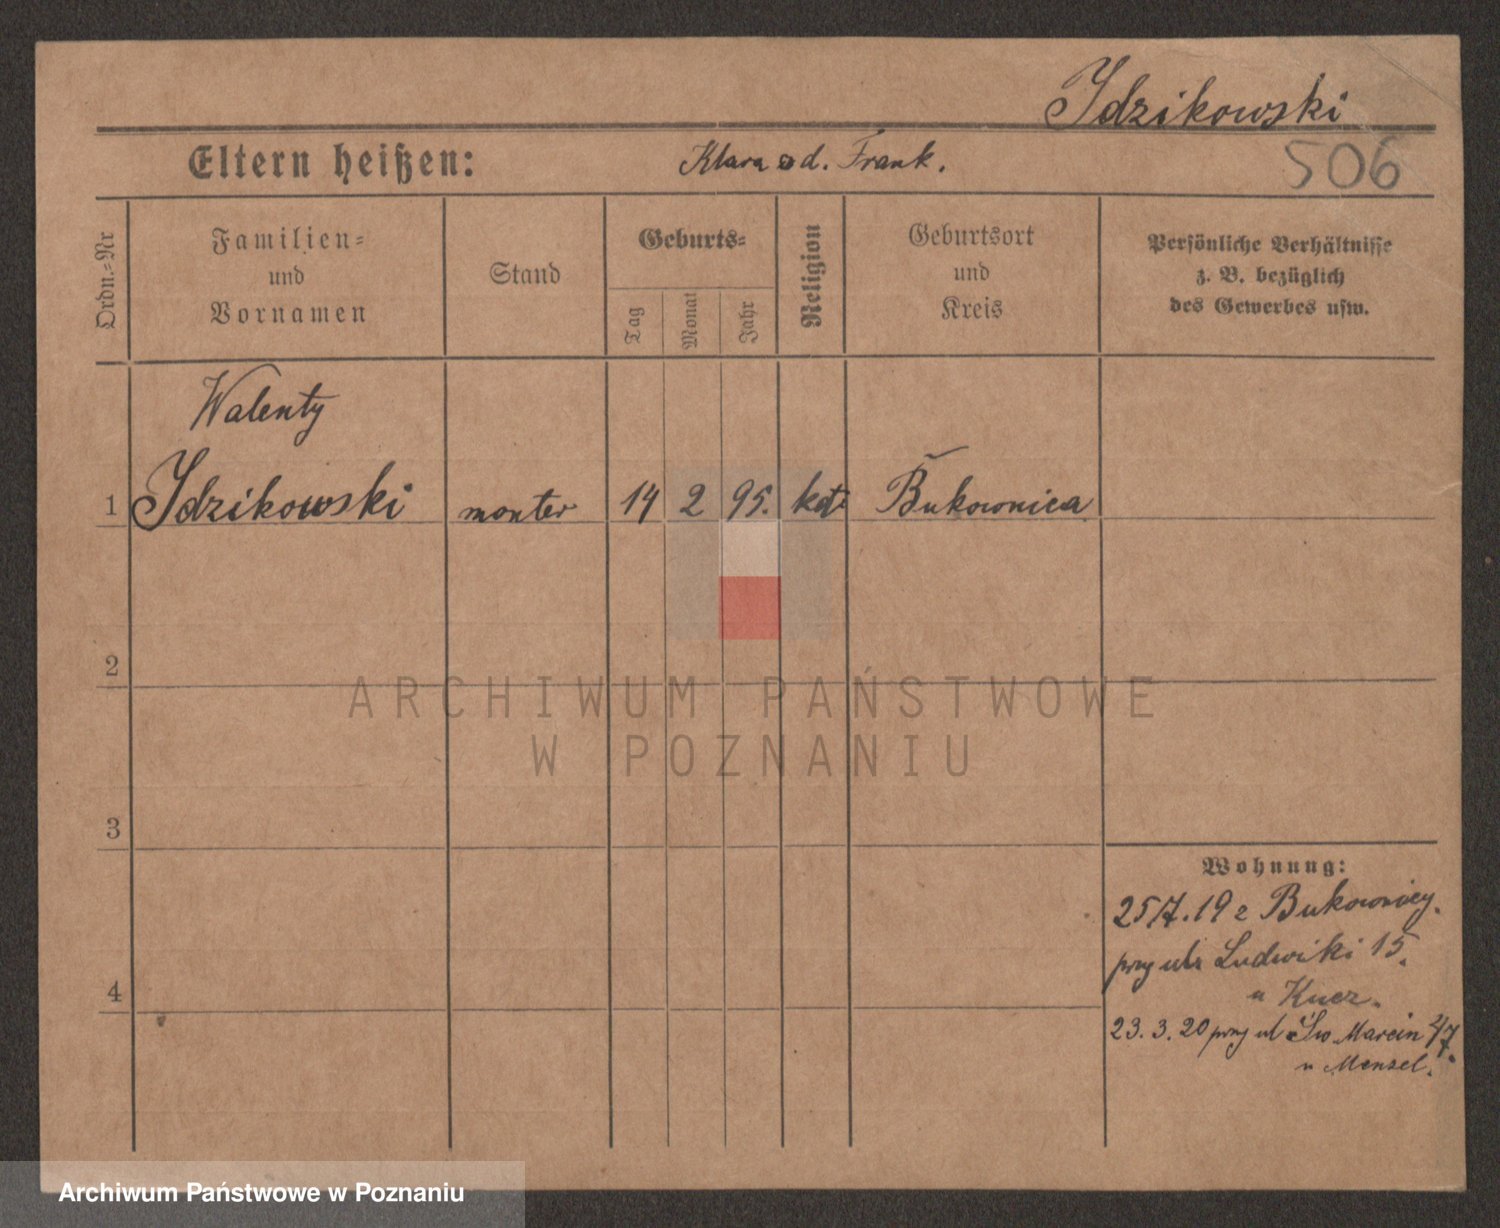 Idzikowski
Eltern heißen: Klara d. Frank.
506
Ordn.-Nr
Familien-
und
Vornamen
Stand
Geburts-
Tag
Monat
Jahr
Religion
Geburtsort
und
Kreis
Persönliche Verhältnisse
z. B. bezüglich
des Gewerbes usw.
Walenty
1 Idzikowski monter 14 2 95. kat. Bukownica
2
ARCHIWUM PAŃSTWOWE
W POZNANIU
3
Wohnung:
25/7.19 z Bukownicy.
przy ul. Ludwiki 15.
4
u Kucz.
23.3.20 przy ul Św. Marcin
u Mensel.
Archiwum Państwowe w Poznaniu